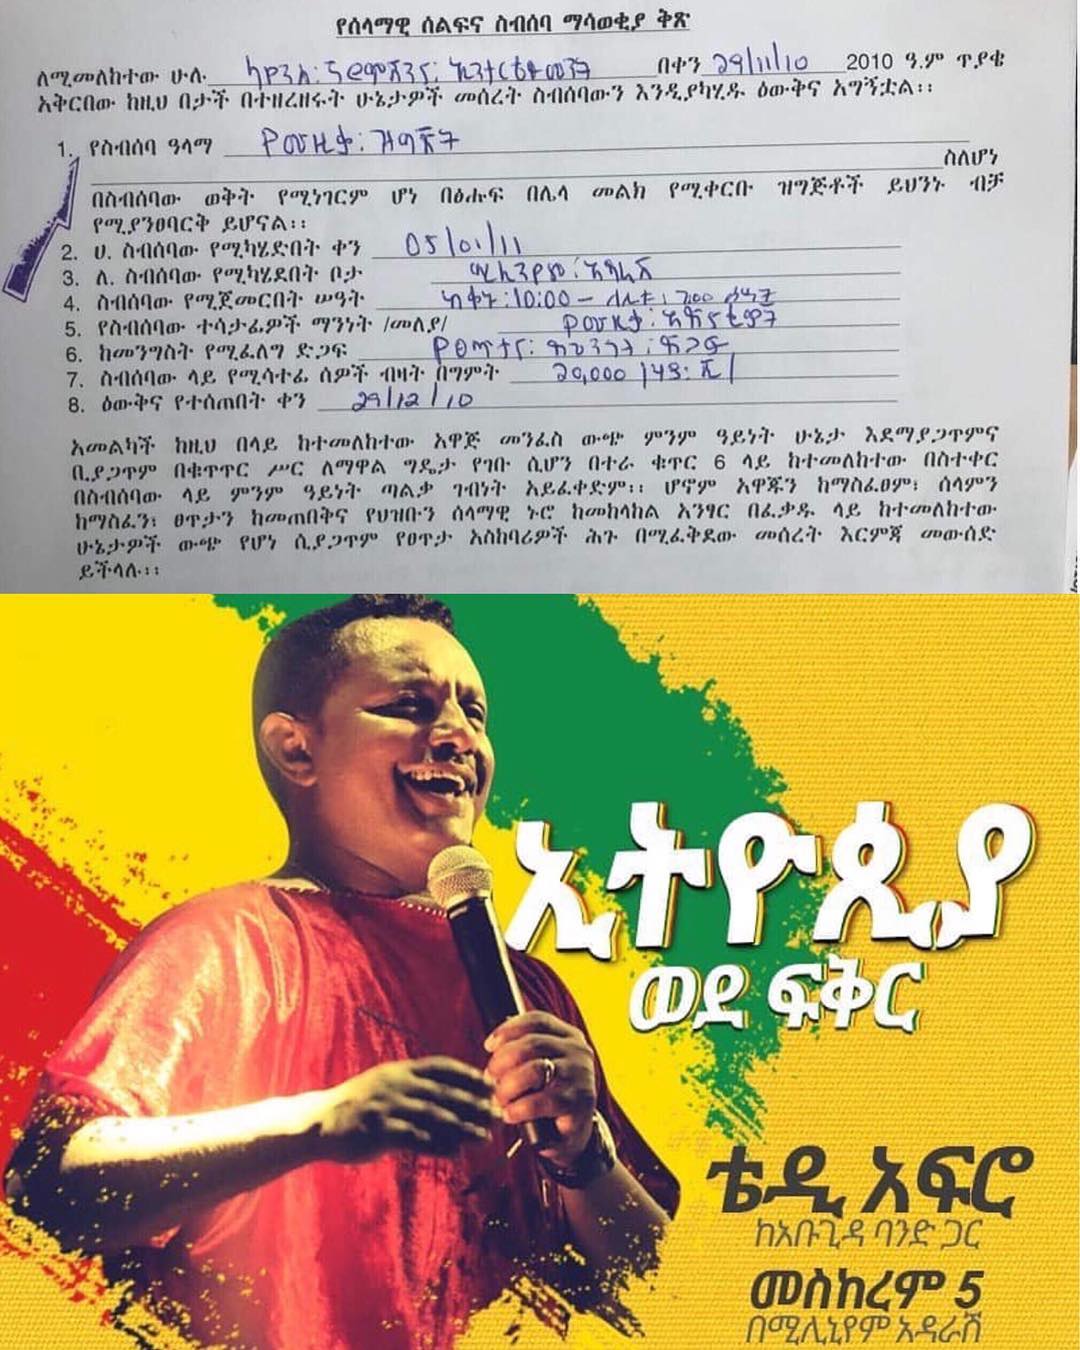 የሰላማዊ ሰልፍና ስብሰባ ማሳወቂያ ቅጽ
ለሚመለከተው ሁሉ በቀን 29/11/10 2010 ዓ.ም ጥያቄ
አቅርበው ከዚህ በታች በተዘረዘሩት ሁኔታዎች መሰረት ስብሰባውን እንዲያካሂዱ ዕውቅና አግኝቷል፡፡
1. የስብሰባ ዓላማ የሙዚቃ: ዝግጅት
ስለሆነ
በስብሰባው ወቅት የሚነገርም ሆነ በፅሑፍ በሌላ መልክ የሚቀርቡ ዝግጅቶች ይህንኑ ብቻ
የሚያንፀባርቅ ይሆናል፡፡
2. ሀ. ስብሰባው የሚካሄድበት ቀን 05/01/11
3. ለ. ስብሰባው የሚካሄደበት ቦታ ሚሊንየም: አዳራሽ
4. ስብሰባው የሚጀመርበት ሠዓት ከቀኑ: 10:00 –
5. የስብሰባው ተሳታፊዎች ማንነት /መለያ/ የሙዚቃ:
6. ከመንግስት የሚፈለግ ድጋፍ የፀጥታና: ድጋፍ
7. ስብሰባው ላይ የሚሳተፊ ሰዎች ብዛት በግምት 20,000 / ሺ /
8. ዕውቅና የተሰጠበት ቀን 29/12/10
አመልካች ከዚህ በላይ ከተመለከተው አዋጅ መንፈስ ውጭ ምንም ዓይነት ሁኔታ እደማያጋጥምና
ቢያጋጥም በቁጥጥር ሥር ለማዋል ግዴታ የገቡ ሲሆን በተራ ቁጥር 6 ላይ ከተመለከተው በስተቀር
በስብሰባው ላይ ምንም ዓይነት ጣልቃ ገብነት አይፈቀድም፡፡ ሆኖም አዋጁን ከማስፈፀም፣ ሰላምን
ከማስፈን፣ ፀጥታን ከመጠበቅና የህዝቡን ሰላማዊ ኑሮ ከመከላከል አንፃር በፈቃዱ ላይ ከተመለከተው
ሁኔታዎች ውጭ የሆነ ሲያጋጥም የፀጥታ አስከባሪዎች ሕጉ በሚፈቅደው መሰረት እርምጃ መውሰድ
ይችላሉ፡፡
ኢትዮጲያ
ወደ ፍቅር
ቴዲ አፍሮ
ከአቡጊዳ ባንድ ጋር
መስከረም 5
በሚሊኒየም አዳራሽ